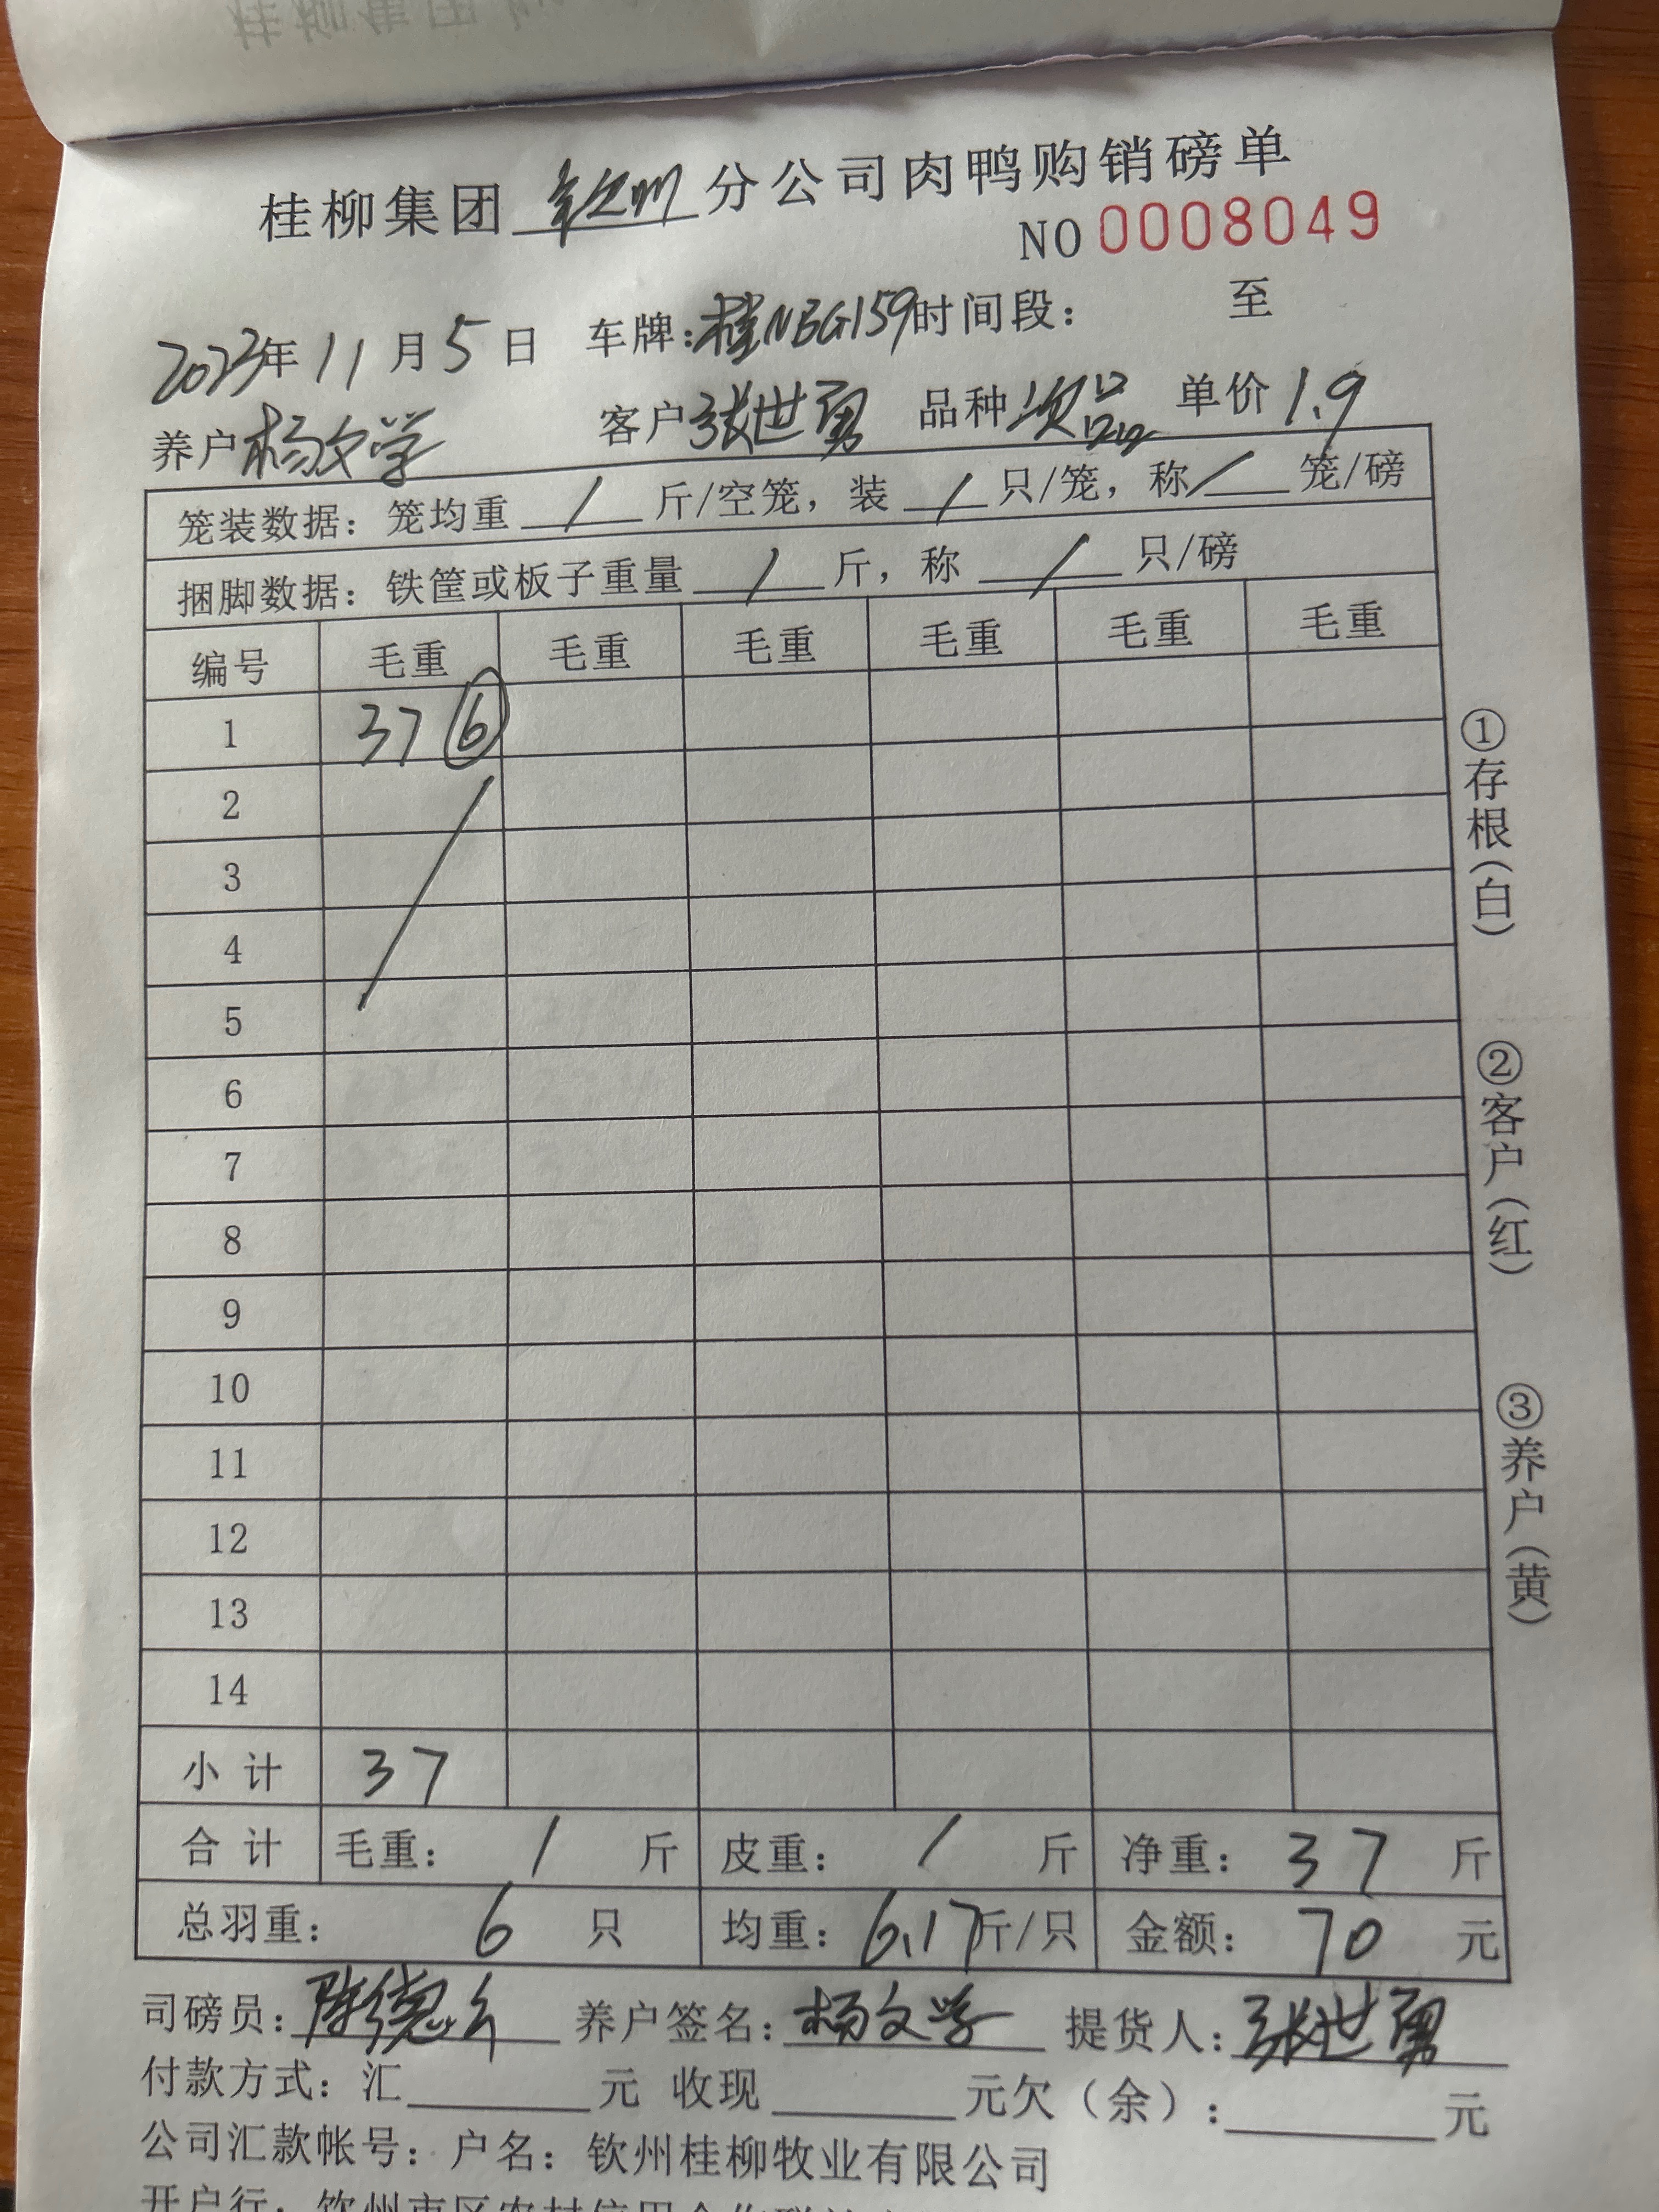 桂柳集团 钦州 分公司肉鸭购销磅单
NO 0008049
2023年 11 月 5 日 车牌:桂NBG159 时间段: 至
养户 杨文学 客户 张世勇 品种 次品 单价 1.9
笼装数据: 笼均重 / 斤/空笼, 装 / 只/笼, 称 / 笼/磅
捆脚数据: 铁筐或板子重量 / 斤, 称 / 只/磅
编号 毛重 毛重 毛重 毛重 毛重 毛重
1 37 ⑥
2
3
4
5
6
7
8
9
10
11
12
13
14
小计 37
合计 毛重: / 斤 皮重: / 斤 净重: 37 斤
总羽重: 6 只 均重: 6.17斤/只 金额: 70 元
司磅员: 陈德 养户签名: 杨文学 提货人: 张世勇
付款方式: 汇 元 收现 元欠(余): 元
公司汇款帐号: 户名: 钦州桂柳牧业有限公司
开户行: 钦州市区农村信用合作联社
①存根(白)
②客户(红)
③养户(黄)